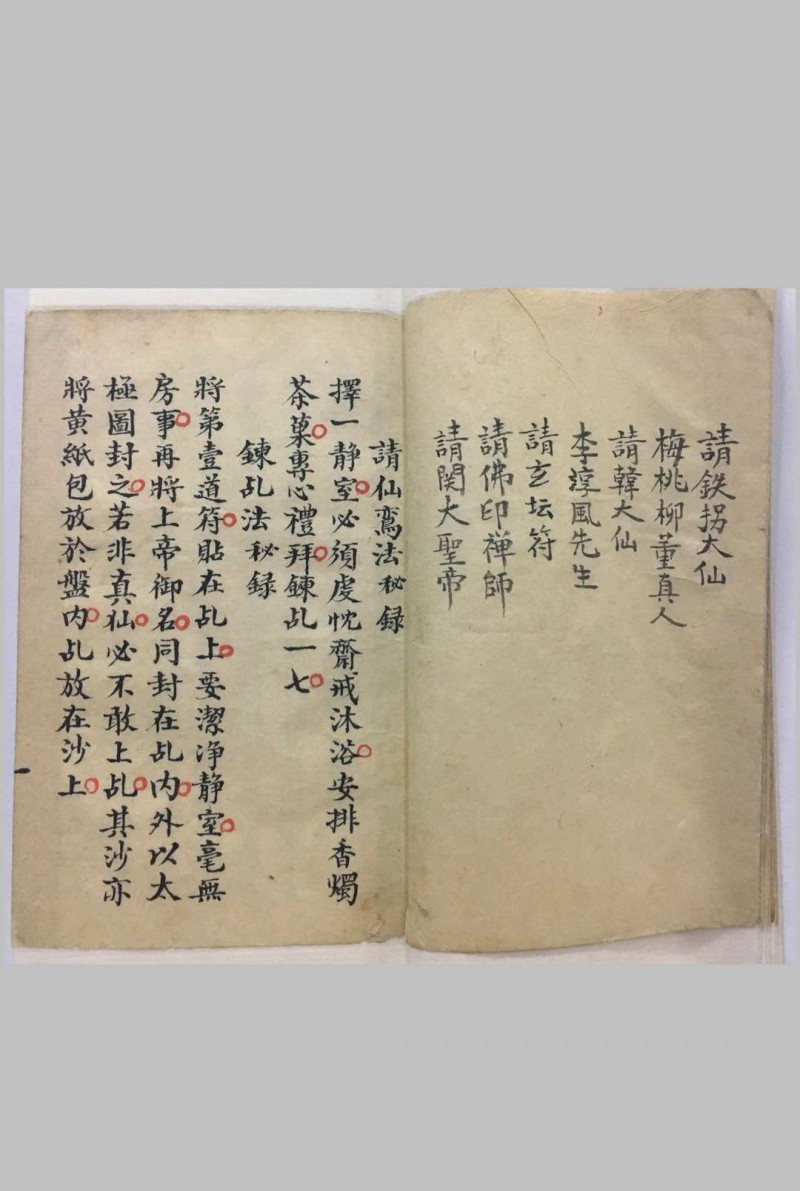 請鉄拐大仙
梅桃柳董真人
請韓大仙
李淳風先生
請玄坛符
請佛印禅師
請関大聖帝
請仙鸞法秘録
擇一静室。必須虔忱齋戒沐浴。安排香燭
茶菓。專心禮拜。鍊乩一七。
鍊乩法秘録
將第壹道符。貼在乩上。要潔净静室。毫無
房事。再將上帝御名。同封在乩内。外以太
極圖封之。若非真仙。必不敢上乩。其沙亦
將黄紙包放於盤内。乩放在沙上。